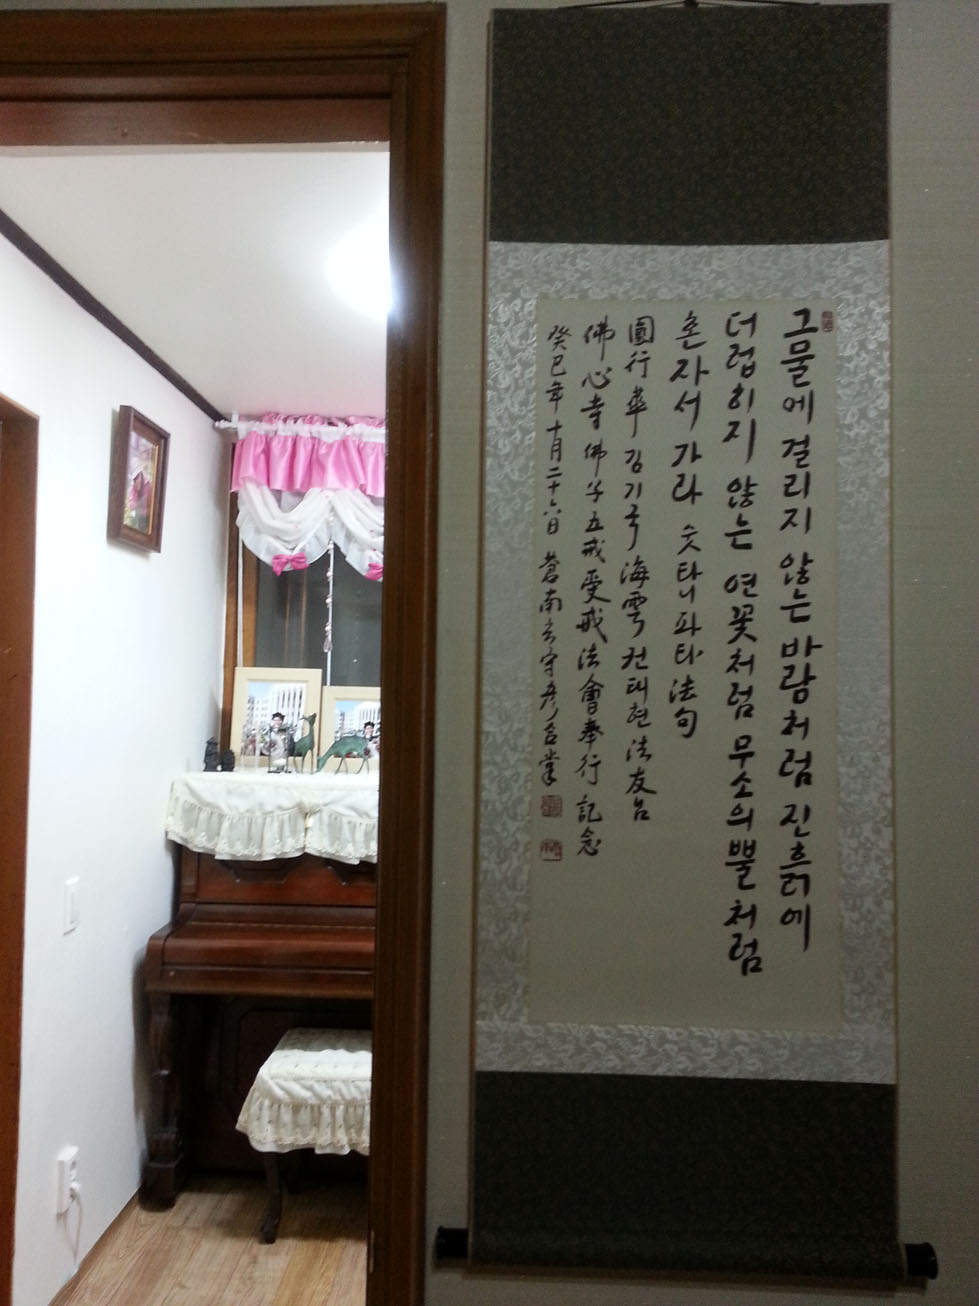 그물에 걸리지 않는 바람처럼 진흙에
더럽히지 않는 연꽃처럼 무소의 뿔처럼
혼자서 가라 숫타니파타 法句
圓行華 김기국 海雲 권태현 法友
佛心寺 佛子五戒受戒法會奉行記念
癸巳年 十月二十六日 蒼南 守彦 合掌